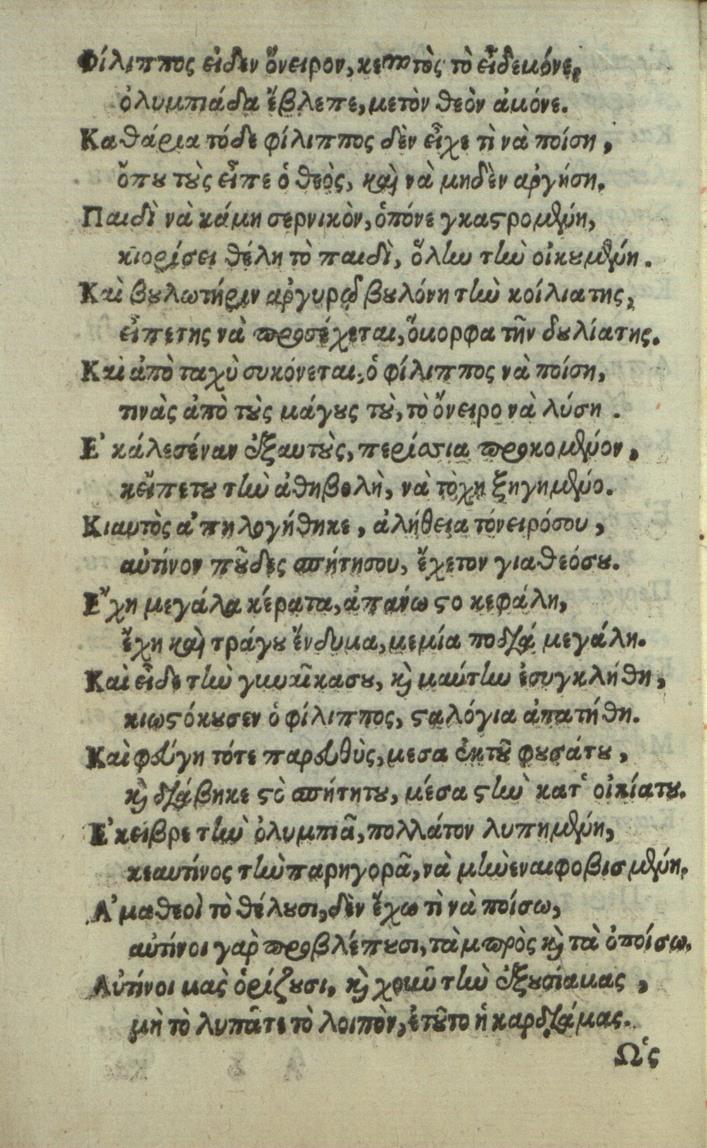 Φίλιππος εἰδεν ὄνειρον, κεπιτὸς τὸ εἶδεμόνε,
ὀλυμπιάδα ἔβλεπε, μετὸν θεὸν ἀμόνε.
Καθάρια τόδε φίλιππος δὲν εἶχε τὶ νὰ ποίση,
ὅπου τοὺς εἶπε ὁ θεὸς, καὶ νὰ μηδὲν αργήση.
Παιδὶ νὰ κάμη σερνικὸν, ὁπόνε γκαστρομένη,
κιορίσει θέλη τὸ παιδὶ, ὅλην τὴν οἰκουμένη.
Καὶ βουλωτήριν αργυρὸ βουλόνη τὴν κοίλιατης,
εἰπετης νὰ προσέχεται, ὄμορφα τῆν δουλίατης.
Καὶ ἀπὸ ταχὺ συκόνεται, ὁ φίλιππος νὰ ποίση,
τινὰς ἀπὸ τοὺς μάγους του, τὸ ὄνειρο νὰ λύση.
Ε᾿κάλεσέναν ἐξαυτοὺς, περίσσια προκομένον,
κεἴπετου τὴν ἀθηβολὴ, νὰ τὄχη ξηγημένο.
Κιαυτὸς α᾿πηλογήθηκε, ἀλήθεια τόνειρόσου,
αὐτίνον ποῦδες σπήτησου, ἔχετον γιαθεόσου.
Ε῎χη μεγάλα κέρατα, ἀπανωστο κεφάλη,
ἔχη καὶ τράγου ἔνδυμα, μεμία ποδιὰ μεγάλη.
Καὶ εἶδε τὴν γυναῖκασου, καὶ μαύτην ἐσυγκλήθη,
κιωστόκουσεν ὁ φίλιππος, σταλόγια ἀπατήθη.
Καὶ φεύγη τότε παρευθὺς, μεσα ἐκτοῦ φουσάτου,
καὶ διάβηκε στὸ σπήτητου, μέσα στὴν κατ᾿ οἰκίατου.
Ε᾿κεῖβρε τὴν ὀλυμπιᾶ, πολλάτον λυπημένη,
κεαυτίνος τὴν παρηγορᾶ, νὰ μὴν εναιφοβισμένη.
Α᾿μαθεοὶ τὸ θέλουσι, δὲν ἔχω τὶ νὰ ποίσω,
αὐτίνοι γαρ προβλέπουσι, τὰμπρὸς καὶ τὰ ὀποίσω.
Αὐτίνοι μας ὁρίζουσι, καὶ χοιοῦ τὴν ἐξουσίαμας,
μὴ τὸ λυπᾶτε τὸ λοιπὸν, ἐτοῦτο ἡ καρδιάμας.
Ω῾ς